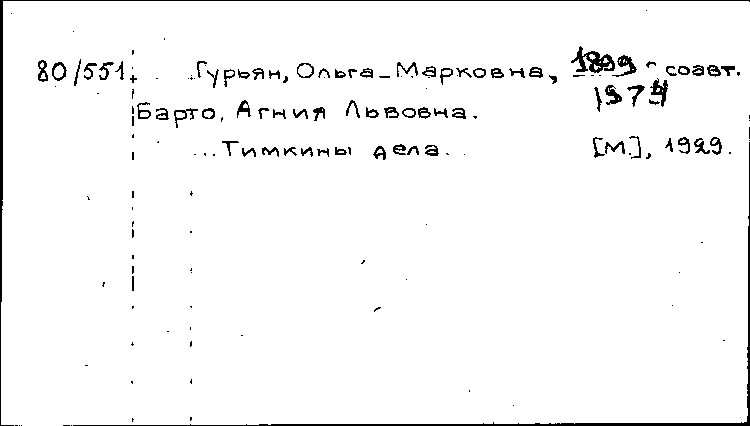 80/551. Гурьян, Ольга Марковна, 1899- соавт.
1973
Барто, Агния Львовна.
...Тимкины дела. [М.], 1929.